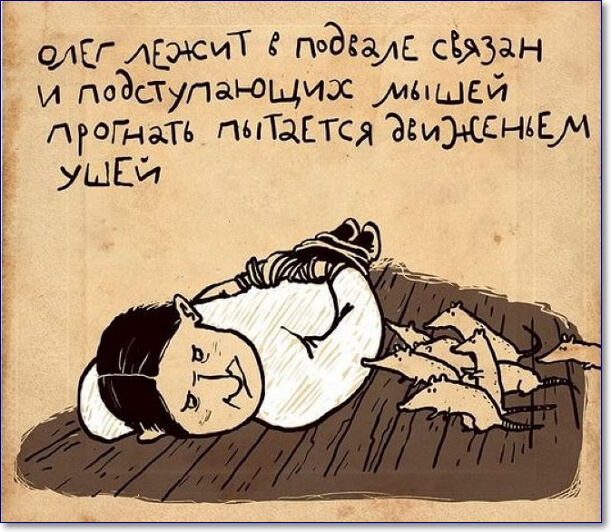 олег лежит в подвале связан
и подступающих мышей
прогнать пытается движеньем
ушей